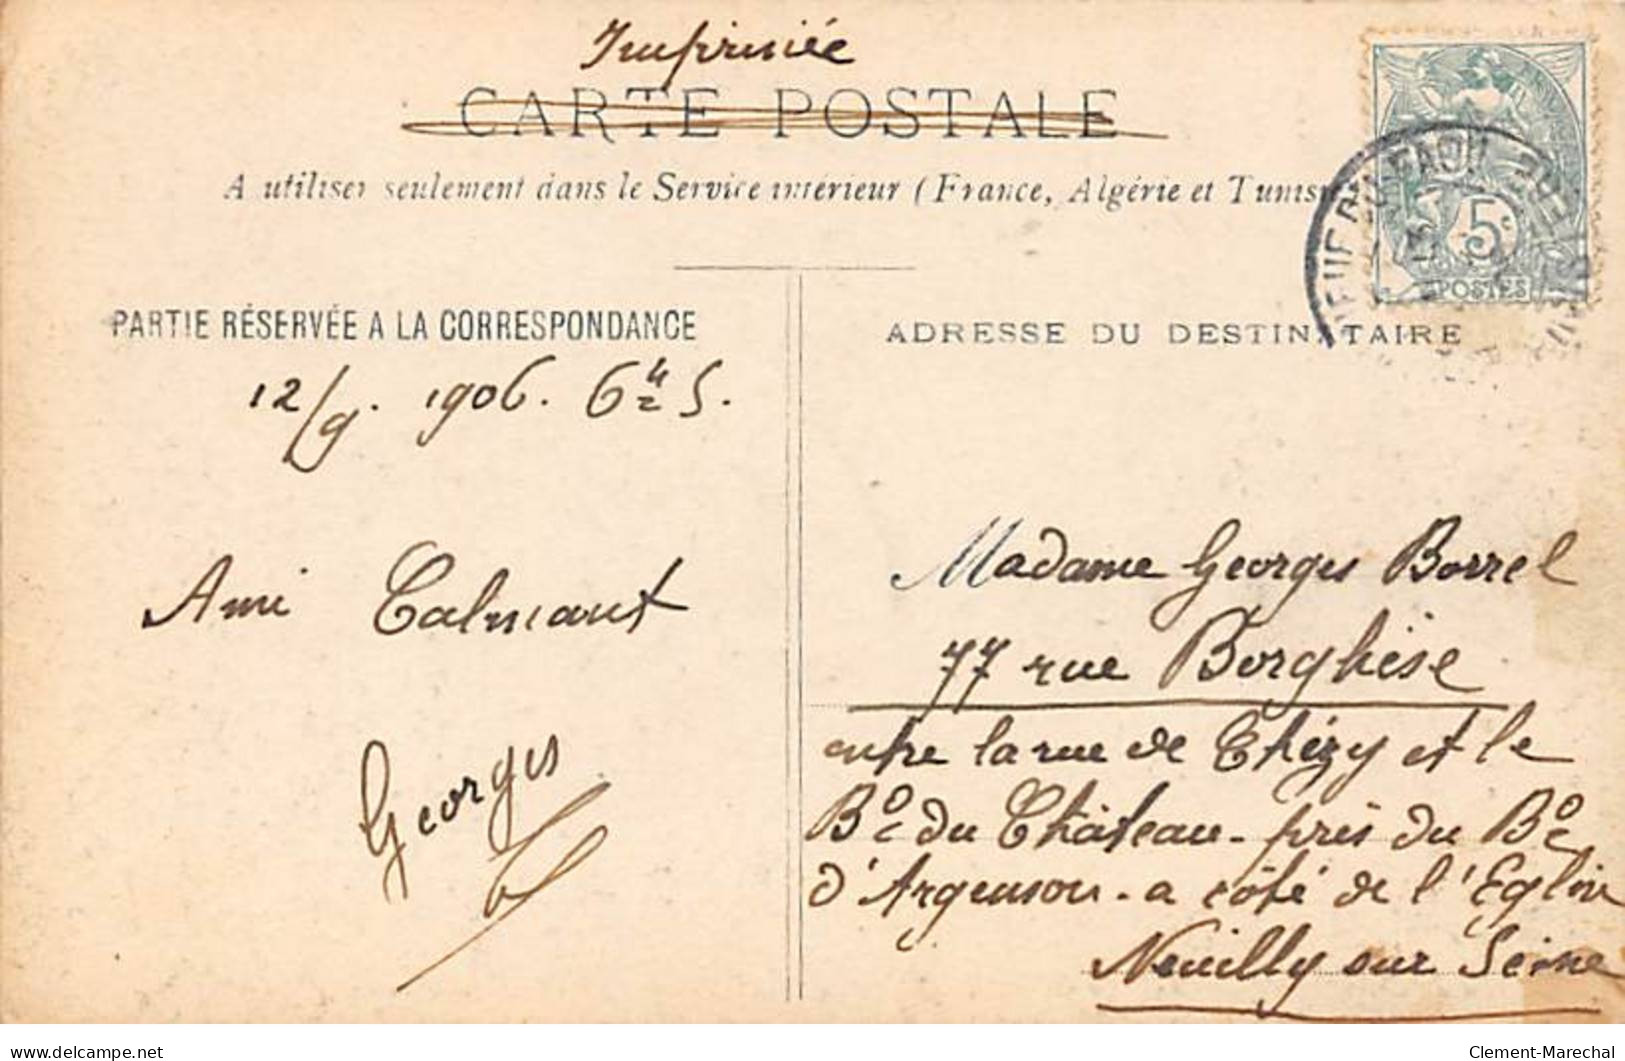 Imprimée
CARTE POSTALE
A utiliser seulement dans le Service intérieur (France, Algérie et Tunis
5c
POSTES
PARTIE RÉSERVÉE A LA CORRESPONDANCE
12/9. 1906. 6 H S.
Ami Calmant
Georges
ADRESSE DU DESTINATAIRE
Madame Georges Borrel
77 rue Borghèse
entre la rue de Chézy et le
Bd du Château - près du Bd
d'Argenson - a côté de l'Eglise
Neuilly sur Seine
delcampe.net
Clement-Marechal